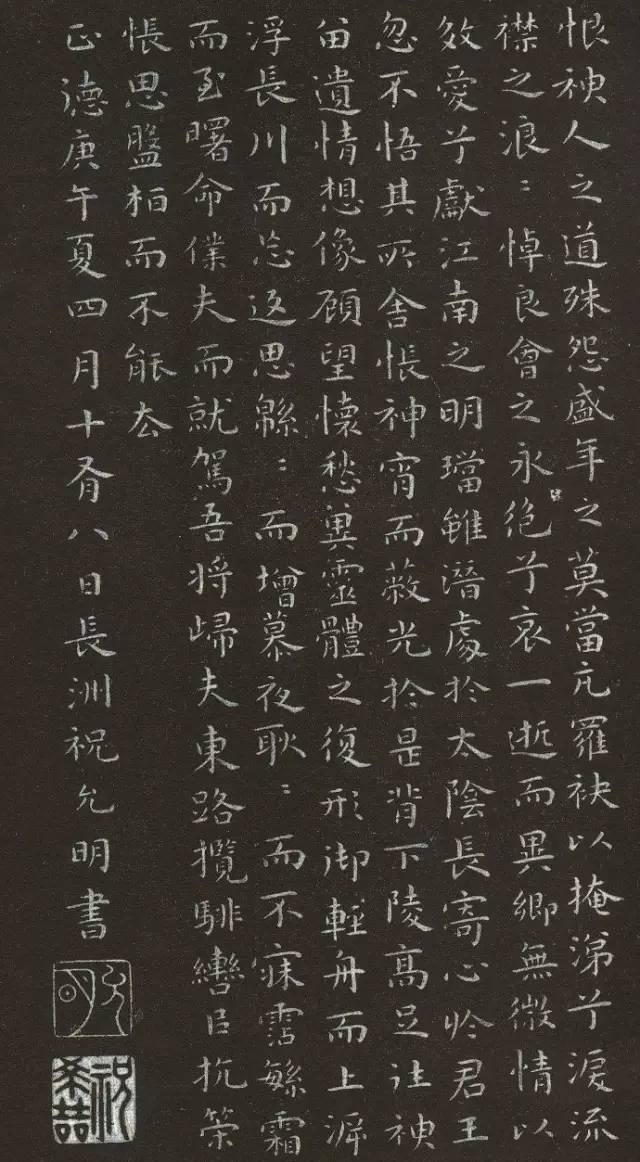 恨神人之道殊怨盛年之莫當亢羅袂以掩涕兮淚流
襟之浪〻悼良會之永絕兮哀一逝而異鄉無微情以
效愛兮獻江南之明璫雖潛處於太陰長寄心於君王
忽不悟其所舍悵神宵而蔽光於是背下陵高足往神
留遺情想像顧望懷愁冀靈體之復形御輕舟而上泝
浮長川而忘返思緜〻而增慕夜耿〻而不寐霑繁霜
而至曙命僕夫而就駕吾將歸夫東路攬騑轡以抗策
悵思盤桓而不能去
正德庚午夏四月十有八日長洲祝允明書
允明
祝希哲